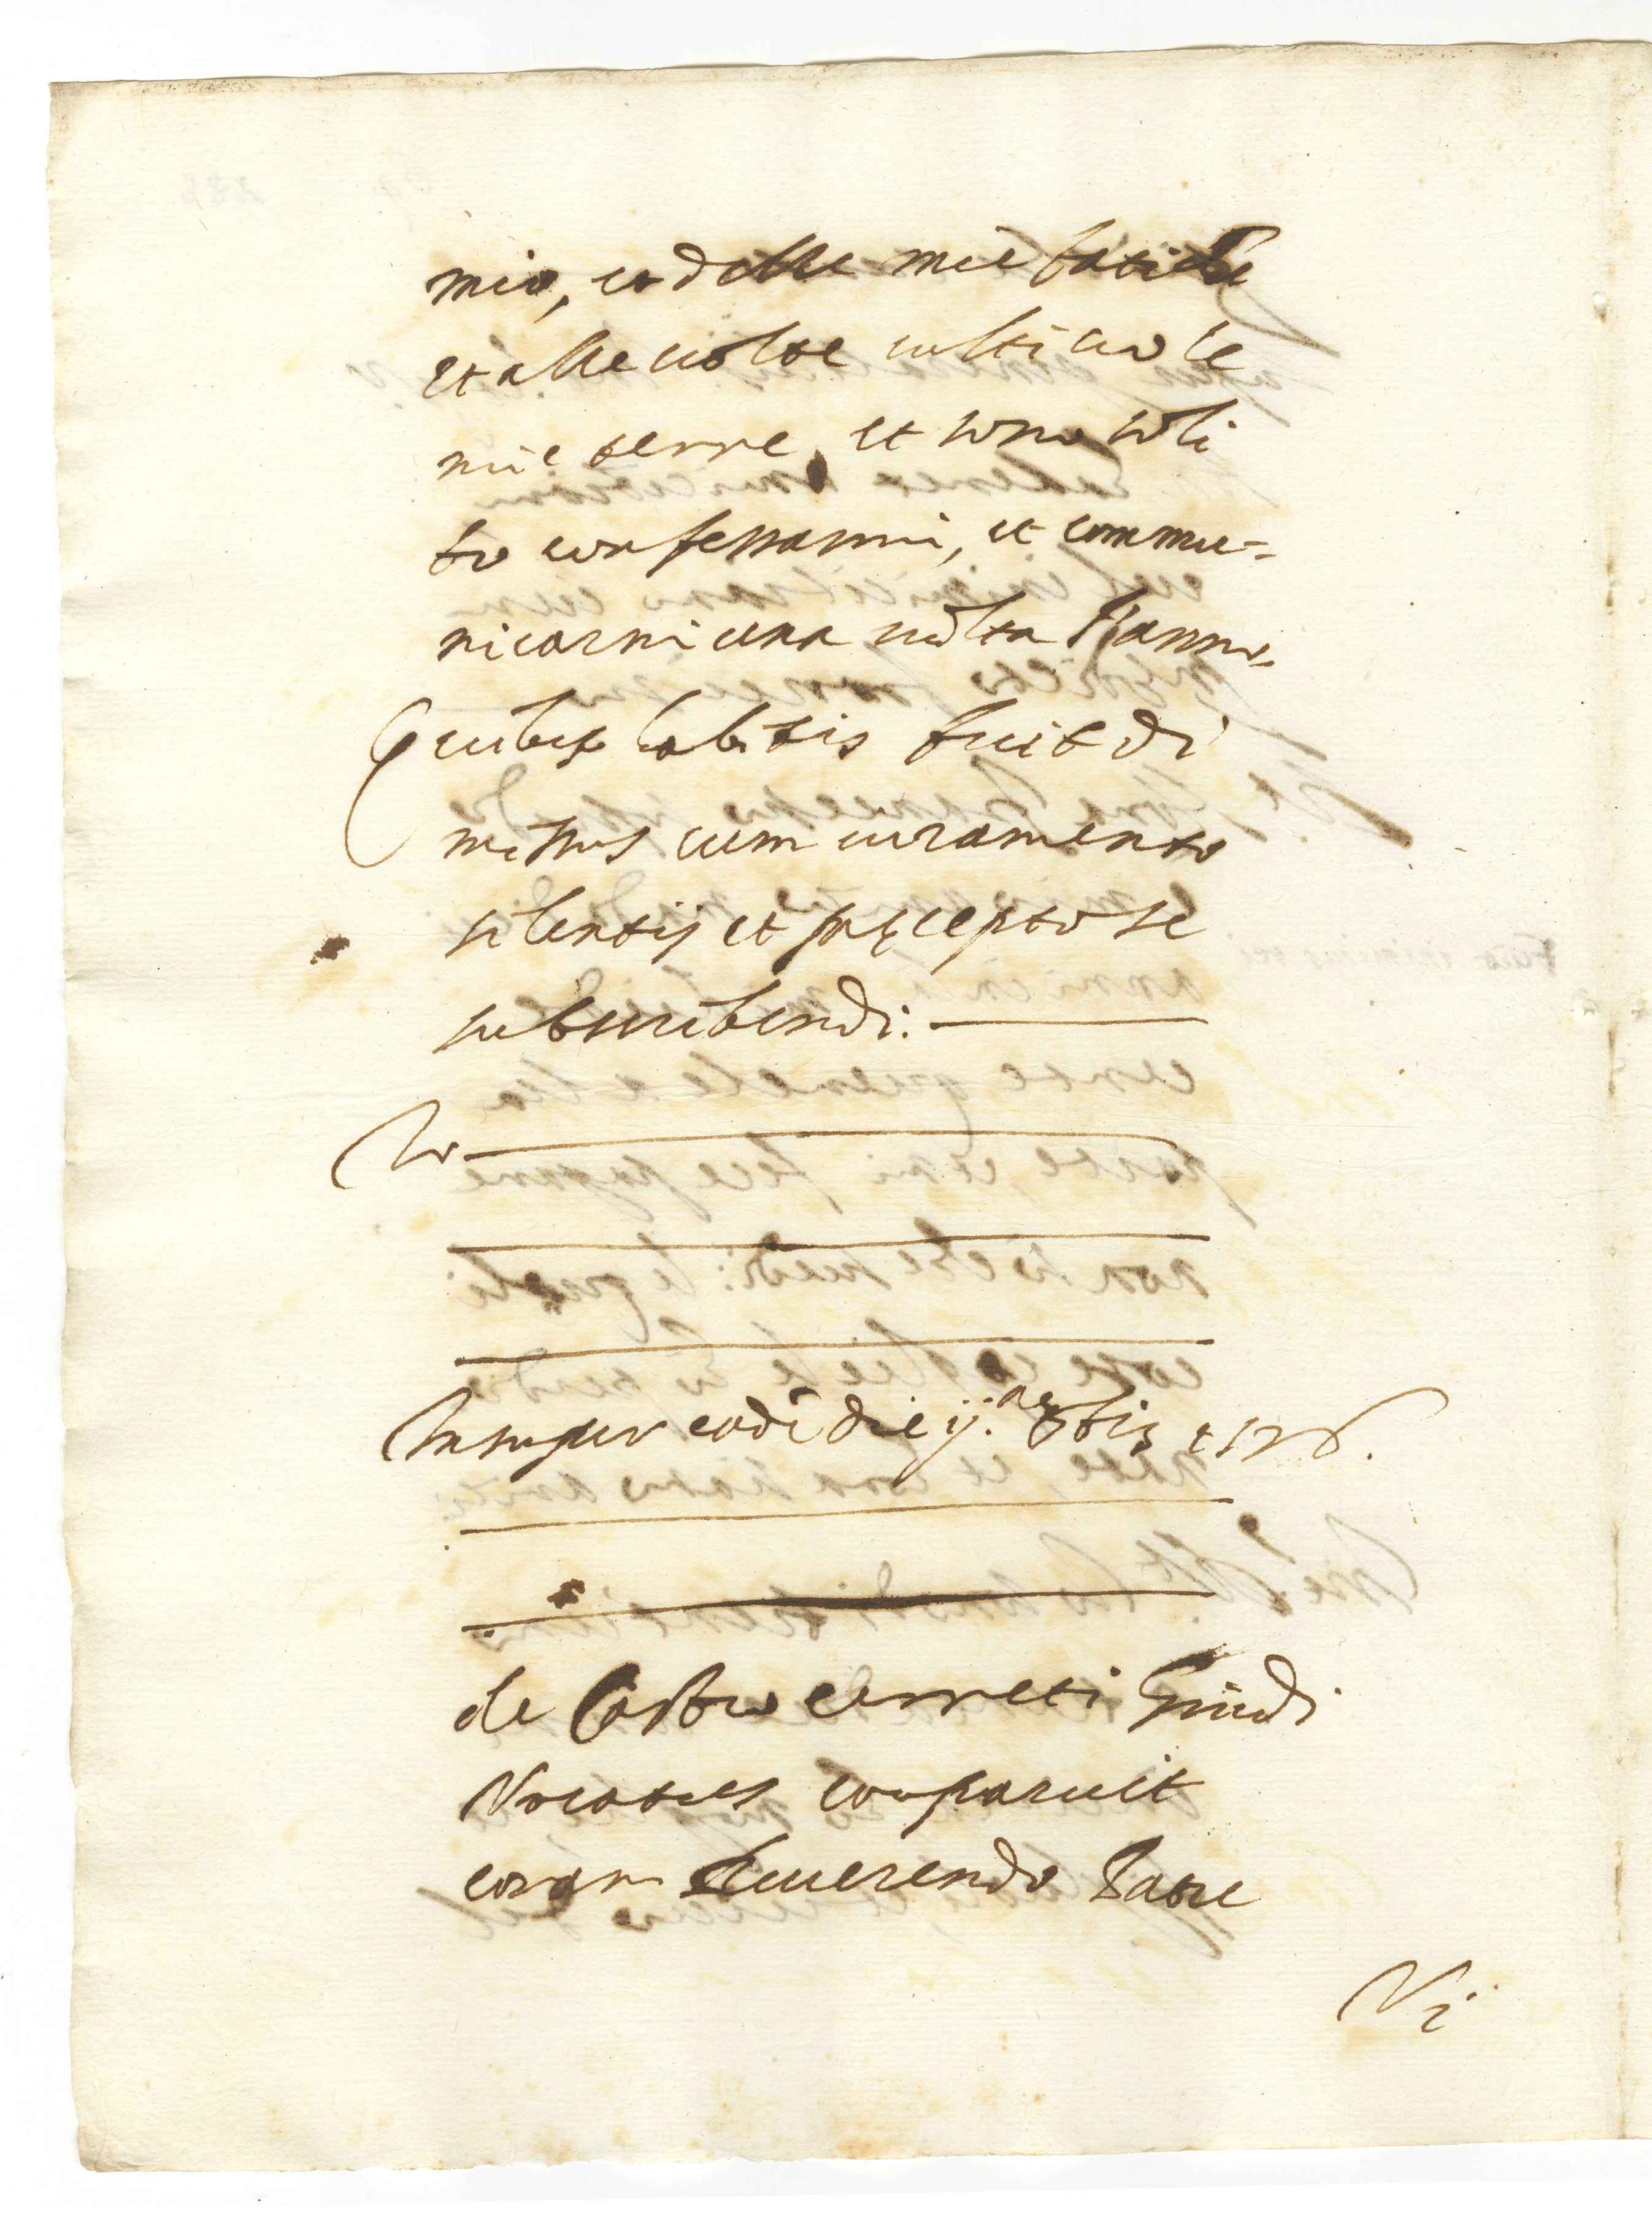 mio, et delle mie fatiche
et alle uolte cultiuo le
mie terre, et sono soli
to confessarmi, et commu=
nicarmi una uolta l'anno.
Quibus habitis fuit di
missus cum iuramento
silentij et pręcepto se
subscribendi:
Io
In super eadē die ij.
de Castro Cerreti Guidi
Vocatus comparuit
coram Reuerendo Patre
Vi